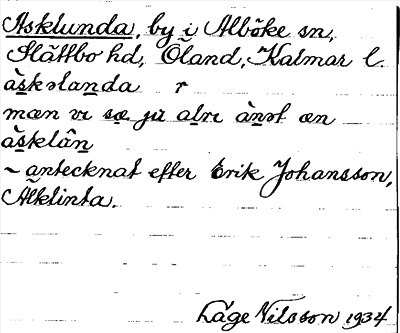 Asklunda, by i Alböke sn,
Slättbo hd, Öland, Kalmar l.
àskəlanda r
mæn vi sæ ju alri ànət æn
àsklân
~ antecknat efter Erik Johansson,
Alklinta.
Låge Nilsson 1934